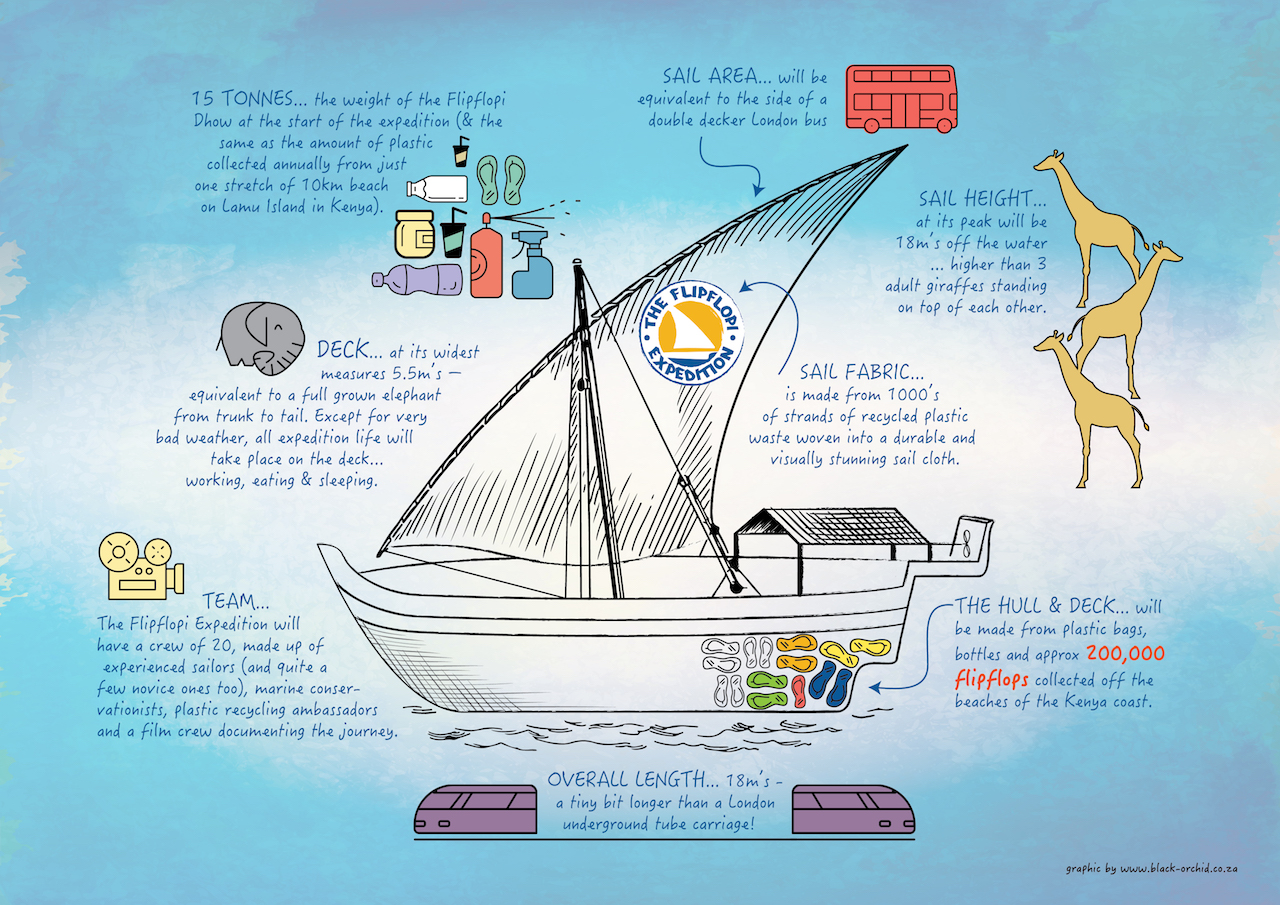 15 TONNES... the weight of the Flipflopi
Dhow at the start of the expedition (& the
same as the amount of plastic
collected annually from just
one stretch of 10km beach
on Lamu Island in Kenya).
SAIL AREA... will be
equivalent to the side of a
double decker London bus
SAIL HEIGHT...
at its peak will be
18m's off the water
... higher than 3
adult giraffes standing
on top of each other.
THE FLIPFLOPI
EXPEDITION
DECK... at its widest
measures 5.5m's –
equivalent to a full grown elephant
from trunk to tail. Except for very
bad weather, all expedition life will
take place on the deck...
working, eating & sleeping.
SAIL FABRIC...
is made from 1000's
of strands of recycled plastic
waste woven into a durable and
visually stunning sail cloth.
TEAM...
The Flipflopi Expedition will
have a crew of 20, made up of
experienced sailors (and quite a
few novice ones too), marine conser-
vationists, plastic recycling ambassadors
and a film crew documenting the journey.
THE HULL & DECK... will
be made from plastic bags,
bottles and approx 200,000
flipflops collected off the
beaches of the Kenya coast.
OVERALL LENGTH... 18m's -
a tiny bit longer than a London
underground tube carriage!
graphic by www.black-orchid.co.za